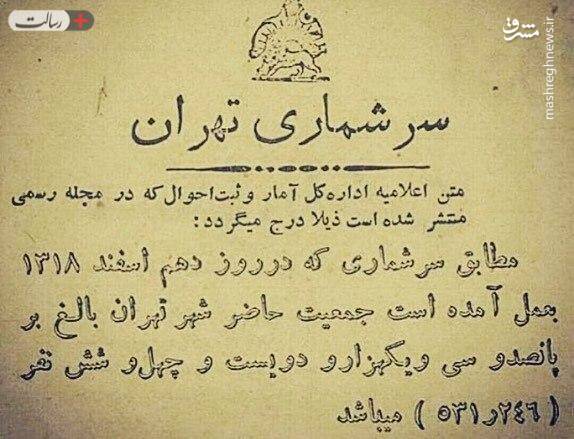 رسالت
مشرق
mashreghnews.ir
سرشماری تهران
متن اعلامیه اداره کل آمار و ثبت احوال که در مجله رسمی
منتشر شده است ذیلا درج میگردد:
مطابق سرشماری که در روز دهم اسفند ۱۳۱۸
بعمل آمده است جمعیت حاضر شهر تهران بالغ بر
پانصدو سی ویکهزارو دویست و چهل و شش نفر
(۵۳۱ر۲٤٦) میباشد